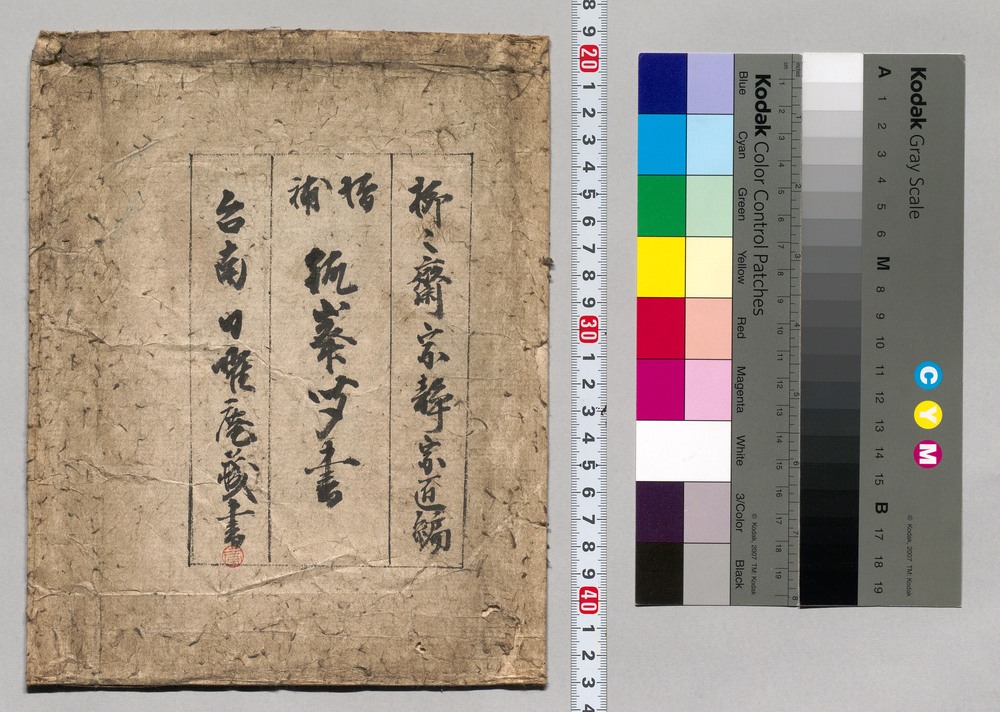 柳々齋宗静宗匠編
増補
孤峯夕書
台南日曜庵蔵書
8 9 20 1 2 3 4 5 6 7 8 9 30 1 2 3 4 5 6 7 8 9 40 1 2 3 4
Kodak Color Control Patches
Blue Cyan Green Yellow Red Magenta White 3/Color Black
© Kodak, 2007 TM: Kodak
Kodak Gray Scale
A 1 2 3 4 5 6 M 8 9 10 11 12 13 14 15 B 17 18 19
C Y M
© Kodak, 2007 TM: Kodak